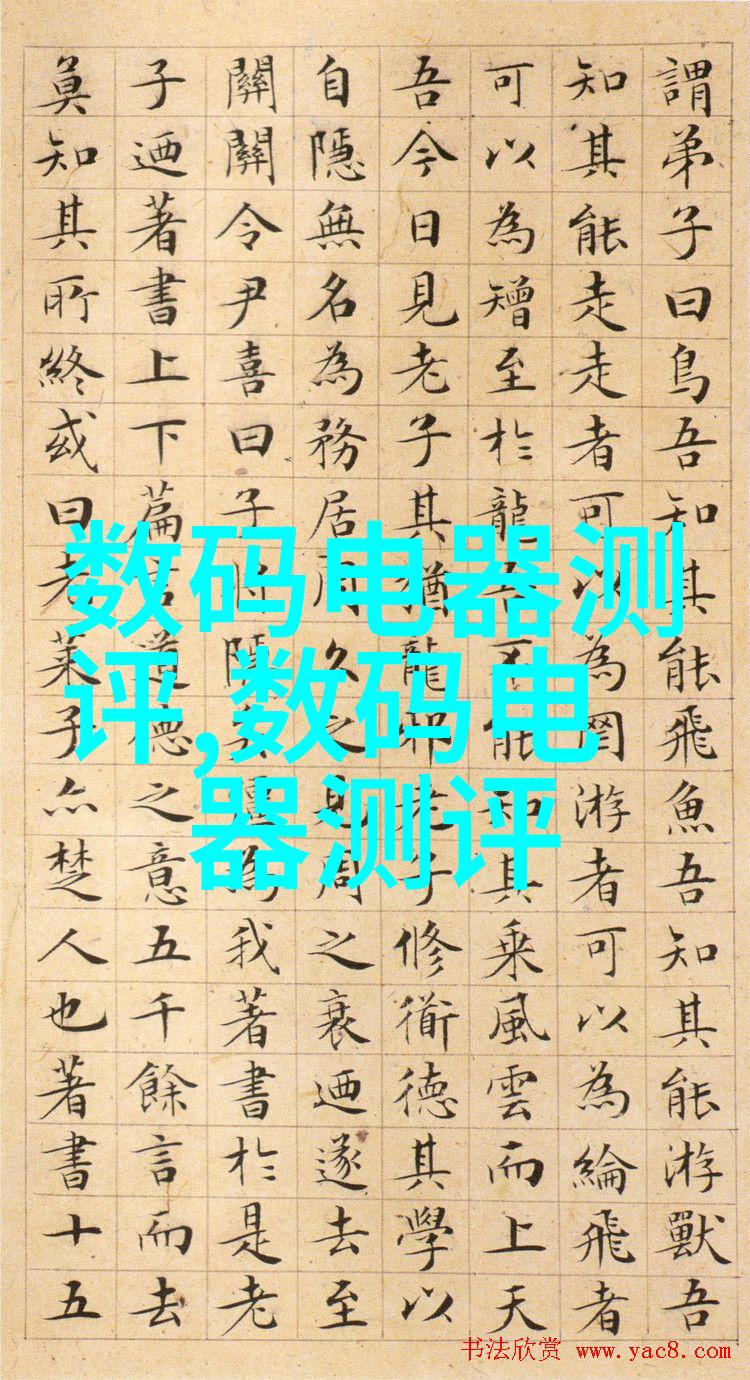 謂弟子曰鳥吾知其能飛魚吾知其能游獸吾
知其能走走者可以為罔游者可以為綸飛者
可以為矰至於龍吾不能知其乘風雲而上天
吾今日見老子其猶龍邪老子修衜德其學以
自隱無名為務居周久之見周之衰迺遂去至
關關令尹喜曰子將隱矣彊為我著書於是老
子迺著書上下篇言道德之意五千餘言而去
莫知其所終或曰老萊子亦楚人也著書十五
数码电器测
评,数码电
器测评
书法欣赏 www.yac8.com